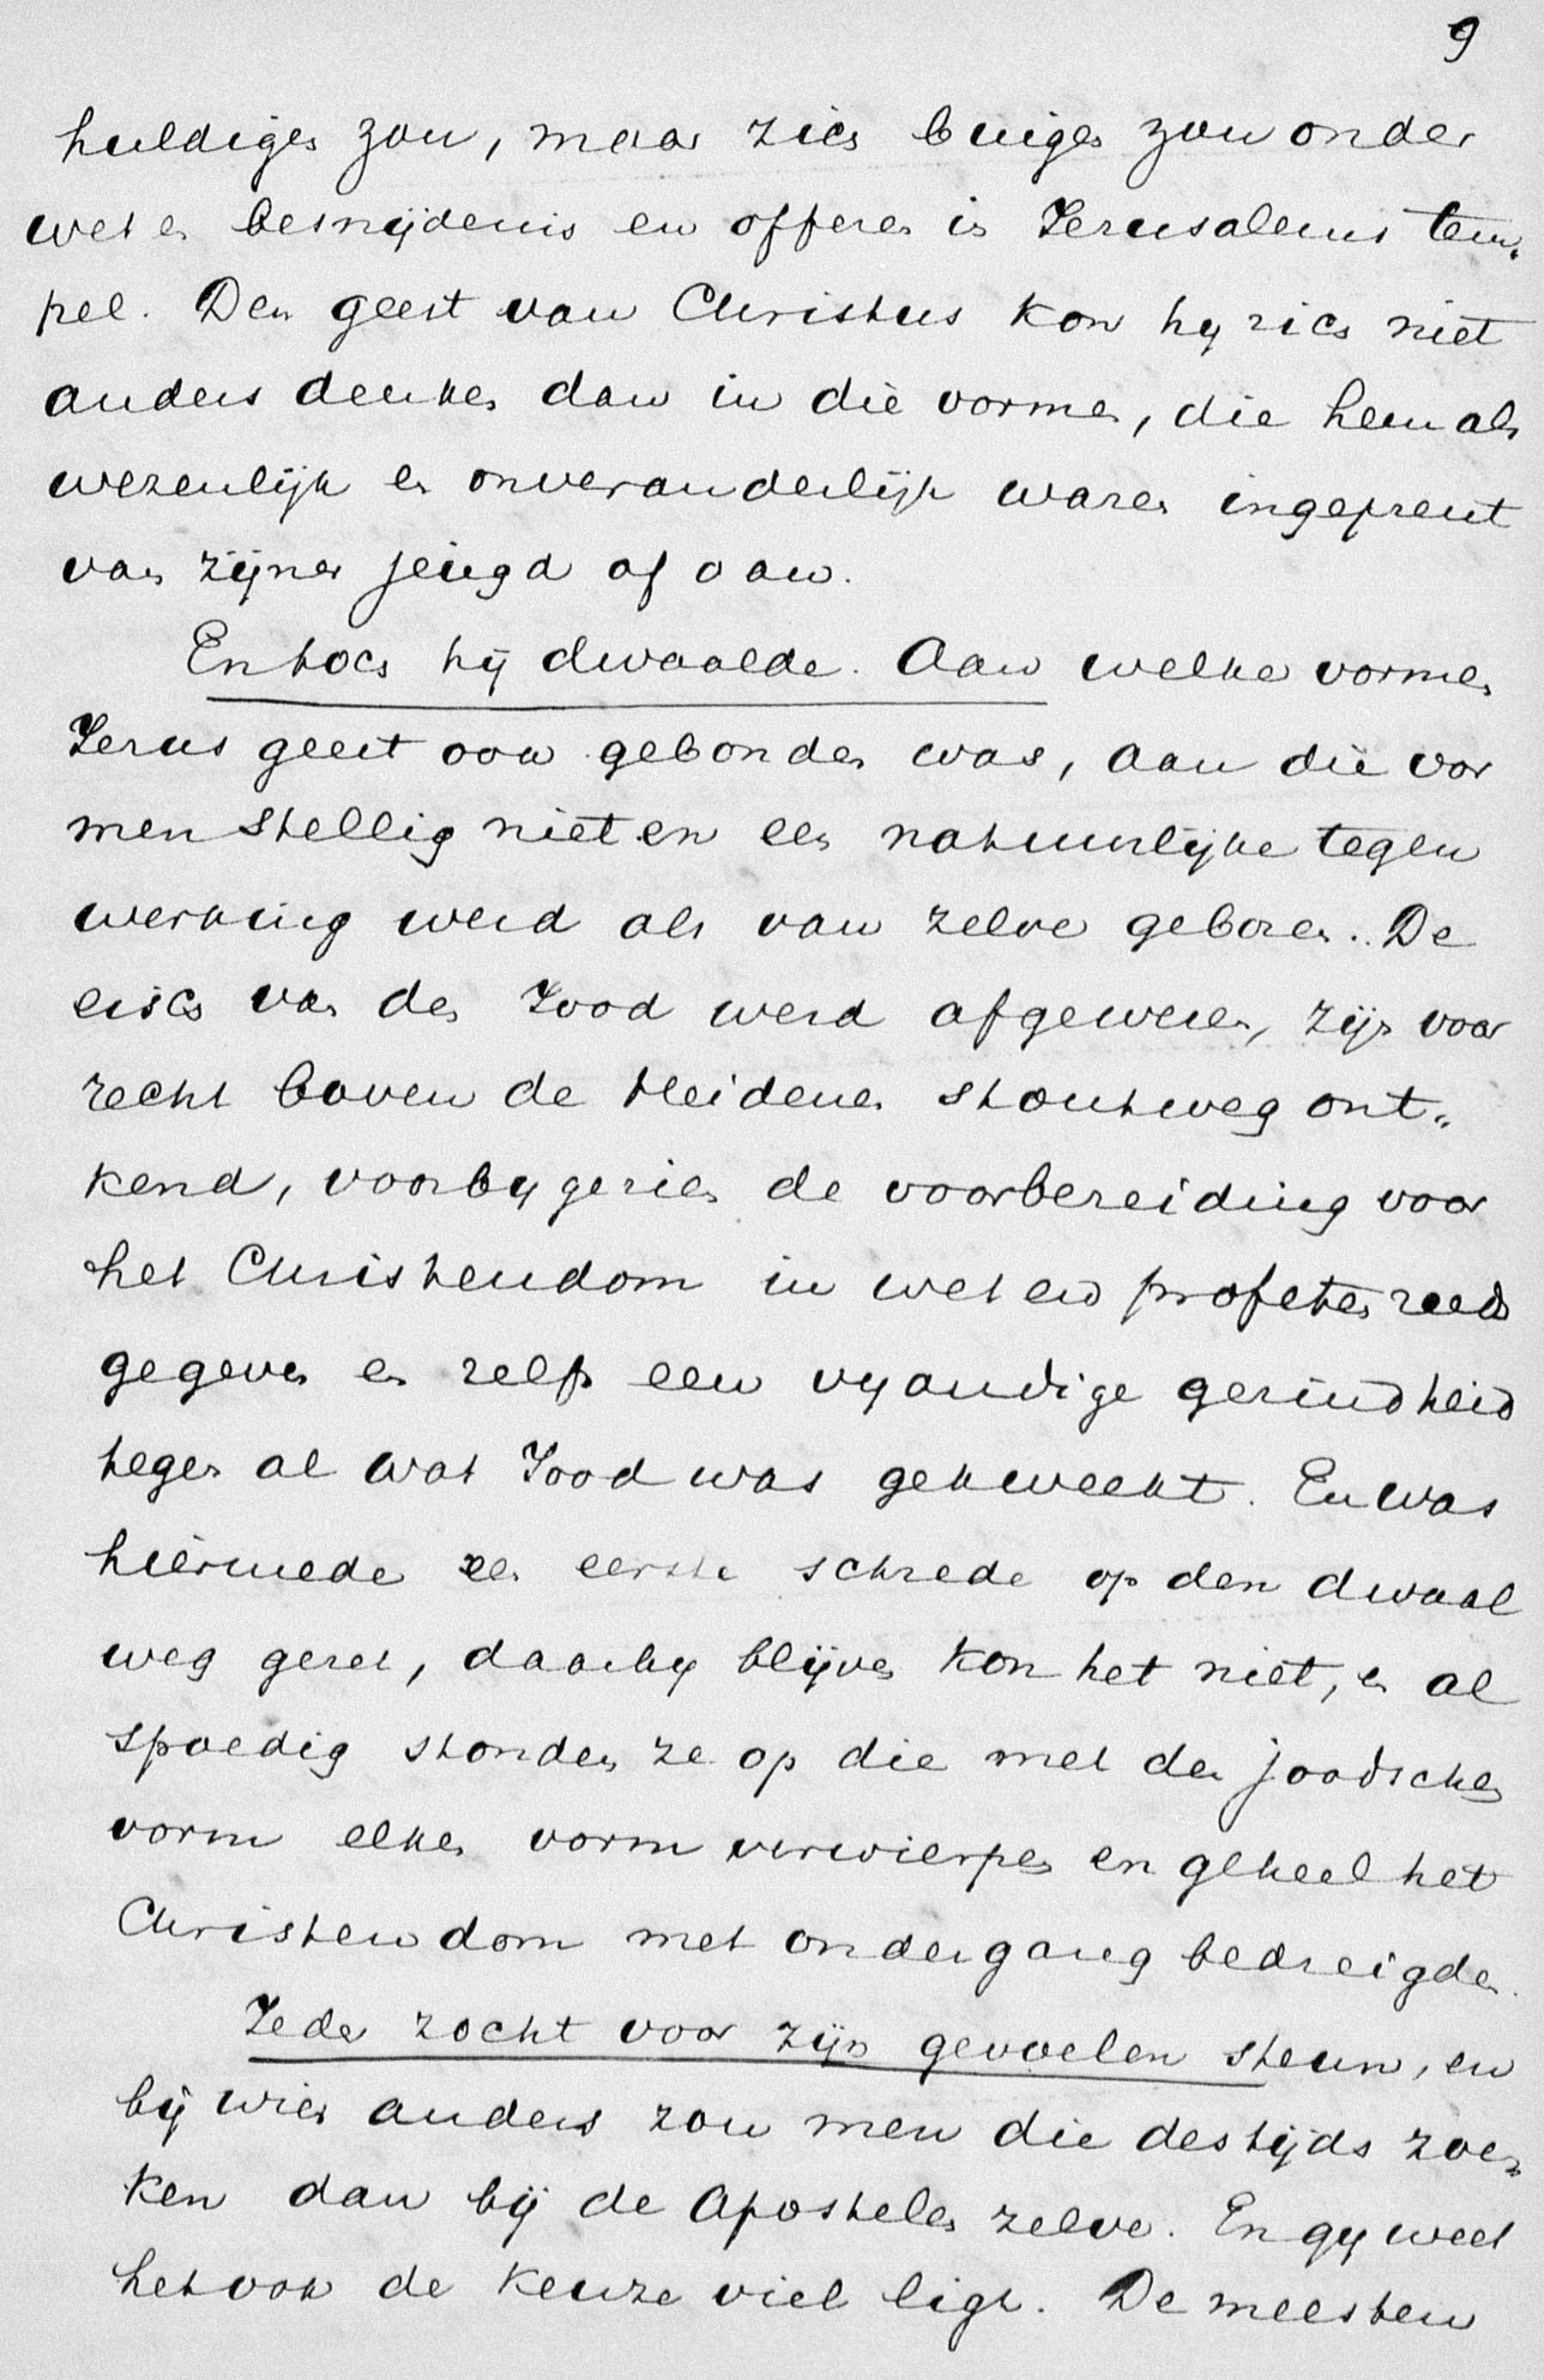 9
huldigen zou, maar zich buigen zou onder
wet en besnijdenis en offeren in Jeruzalems tem-
pel. Den geest van Christus kon hy zich niet
anders denken dan in die vormen, die hem als
wezenlijk en onveranderlijk waren ingeprent
van zijner jeugd af aan.
En toch hij dwaalde. Aan welke vormen
Jezus geest ook gebonden was, aan die vor
men stellig niet en een natuurlijke tegen
werking werd als van zelve geboren. De
eisch van den Jood werd afgewezen, zijn voor
recht boven de Heidenen stoutweg ont-
kend, voorbygezien de voorbereiding voor
het Christendom in wet en profeten reeds
gegeven en zelfs een vyandige gezindheid
tegen al wat Jood was gekweekt. En was
hiermede een eerste schrede op den dwaal
weg gezet, daarby blijven kon het niet, en al
spoedig stonden ze op die met den joodschen
vorm elken vorm verwierpen en geheel het
Christendom met ondergang bedreigden.
Ieder zocht voor zijn gevoelen steun, en
bij wien anders zou men die destijds zoe-
ken dan bij de Apostelen zelve. En gy weet
het ook de keuze viel ligt. De meesten